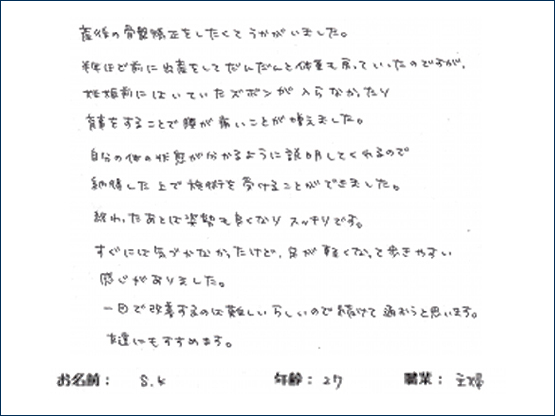 産後の骨盤矯正をしたくてうかがいました。
半年ほど前に出産をしてだんだんと体重も戻っていったのですが、
妊娠前にはいていたズボンが入らなかったり
育事をすることで腰が痛いことが増えました。
自分の体の状態が分かるように説明してくれるので
納得した上で施術を受けることができました。
終わったあとは姿勢も良くなりスッキリです。
すぐには気づかなかったけど、足が軽くなって歩きやすい
感じがありました。
一回で改善するのは難しいらしいので続けて通おうと思います。
友達にもすすめます。
お名前： S.K 年齢：27 職業：主婦